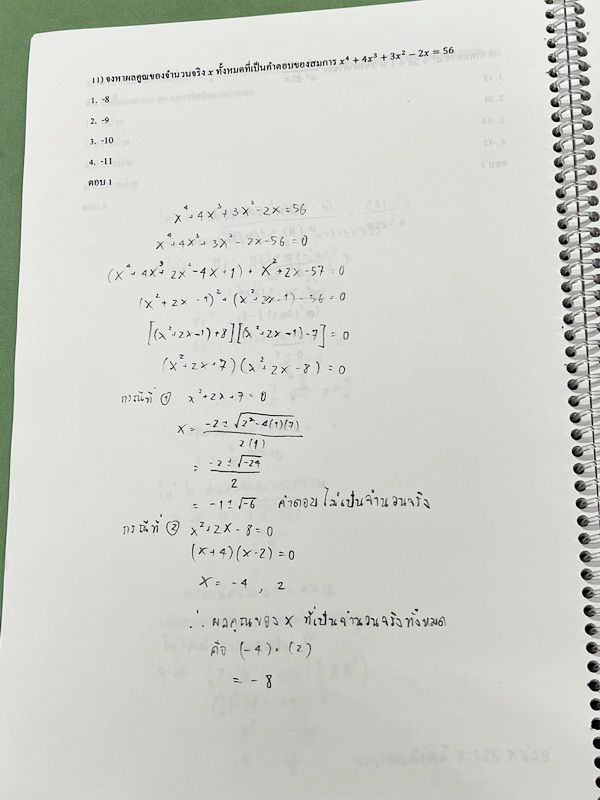 11) จงหาผลคูณของจำนวนจริง x ทั้งหมดที่เป็นคำตอบของสมการ x⁴ + 4x³ + 3x² − 2x = 56
1. -8
2. -9
3. -10
4. -11
ตอบ 1
x⁴+4x³+3x²-2x=56
x⁴+4x³+3x²-2x-56=0
(x⁴+4x³+2x²-4x+1) + x²+2x-57=0
(x²+2x-1)²+(x²+2x-1)-56=0
[(x²+2x-1)+8][(x²+2x-1)-7]=0
(x²+2x+7)(x²+2x-8)=0
กรณีที่ ① x²+2x+7=0
x = (-2±√(2²-4(1)(7)))/2(1)
= (-2±√-24)/2
= -1±√-6 คำตอบไม่เป็นจำนวนจริง
กรณีที่ ② x²+2x-8=0
(x+4)(x-2)=0
x = -4 , 2
∴ ผลคูณของ x ที่เป็นจำนวนจริงทั้งหมด
คือ (-4)·(2)
= -8